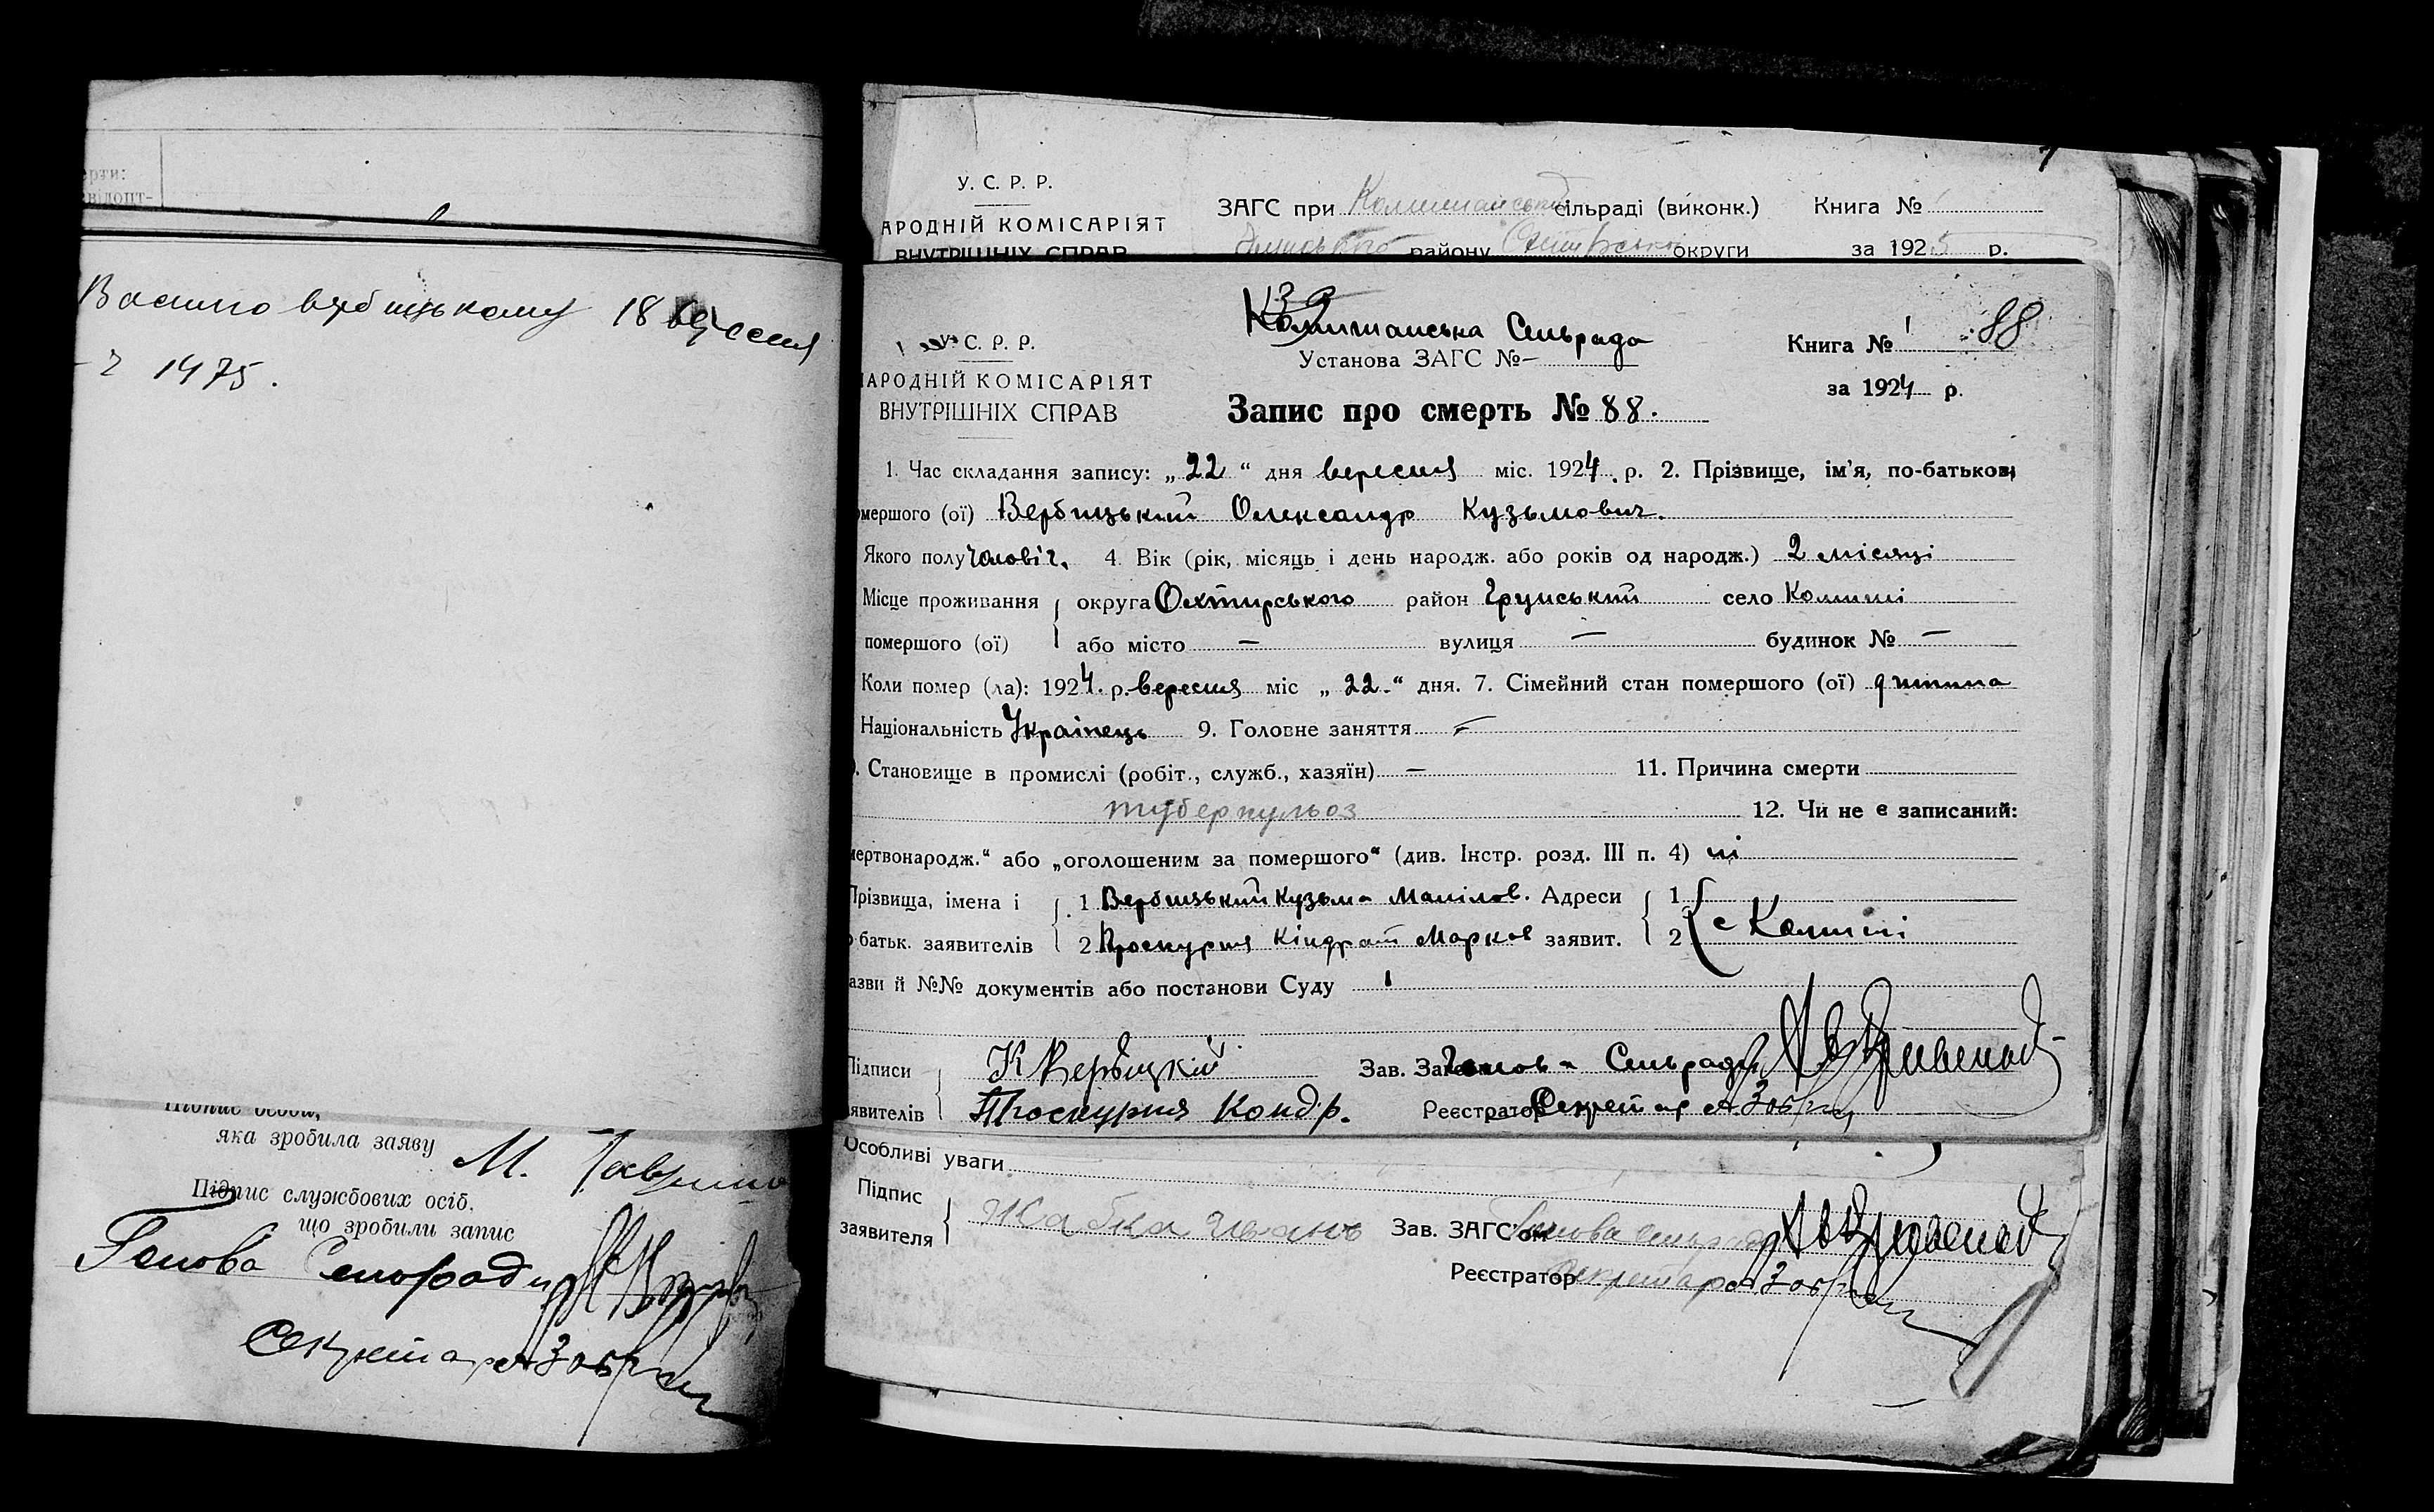 рти:
відопт-
Василю Вербицькому 18 вересня
1975.
яка зробила заяву М.
Підпис службових осіб,
що зробили запис
Голова Сільради
Секретар
У. С. Р. Р.
АРОДНІЙ КОМІСАРІЯТ
ВНУТРІШНІХ СПРАВ
ЗАГС при сільраді (виконк.) Книга №
району округи за 1925 р.
Сільрада
У. С. Р. Р.
АРОДНІЙ КОМІСАРІЯТ
ВНУТРІШНІХ СПРАВ
Установа ЗАГС № –
Книга № 1 88
за 1924 р.
Запис про смерть № 88.
1. Час складання запису: „22“ дня вересня міс. 1924. р. 2. Прізвище, ім'я, по-батькові
мершого (ої) Вербицький Олександр Кузьмович.
Якого полу чоловіч. 4. Вік (рік, місяць і день народж. або років од народж.) 2 місяці
Місце проживання округа Охтирського район Грунський село
помершого (ої) або місто – вулиця – будинок № –
Коли помер (ла): 1924. р. вересня міс „22.“ дня. 7. Сімейний стан помершого (ої) дитина
Національність Українець 9. Головне заняття –
. Становище в промислі (робіт., служб., хазяїн) – 11. Причина смерти
туберкульоз 12. Чи не є записаний:
мертвонародж.“ або „оголошеним за помершого“ (див. Інстр. розд. III п. 4) ні
Прізвища, імена і 1 Вербицький Кузьма Адреси 1
батьк. заявителів 2 Проскурня Кіндрат Марков заявит. 2 с
азви й №№ документів або постанови Суду
Підписи К Вербіцкій Зав. Загсом Голова Сільради
явителів Проскурня Кондр. Реєстратор Секретар
Особливі уваги
Підпис
заявителя Жабка Иванъ Зав. ЗАГС'ом Голова сільради
Реєстратор Секретар